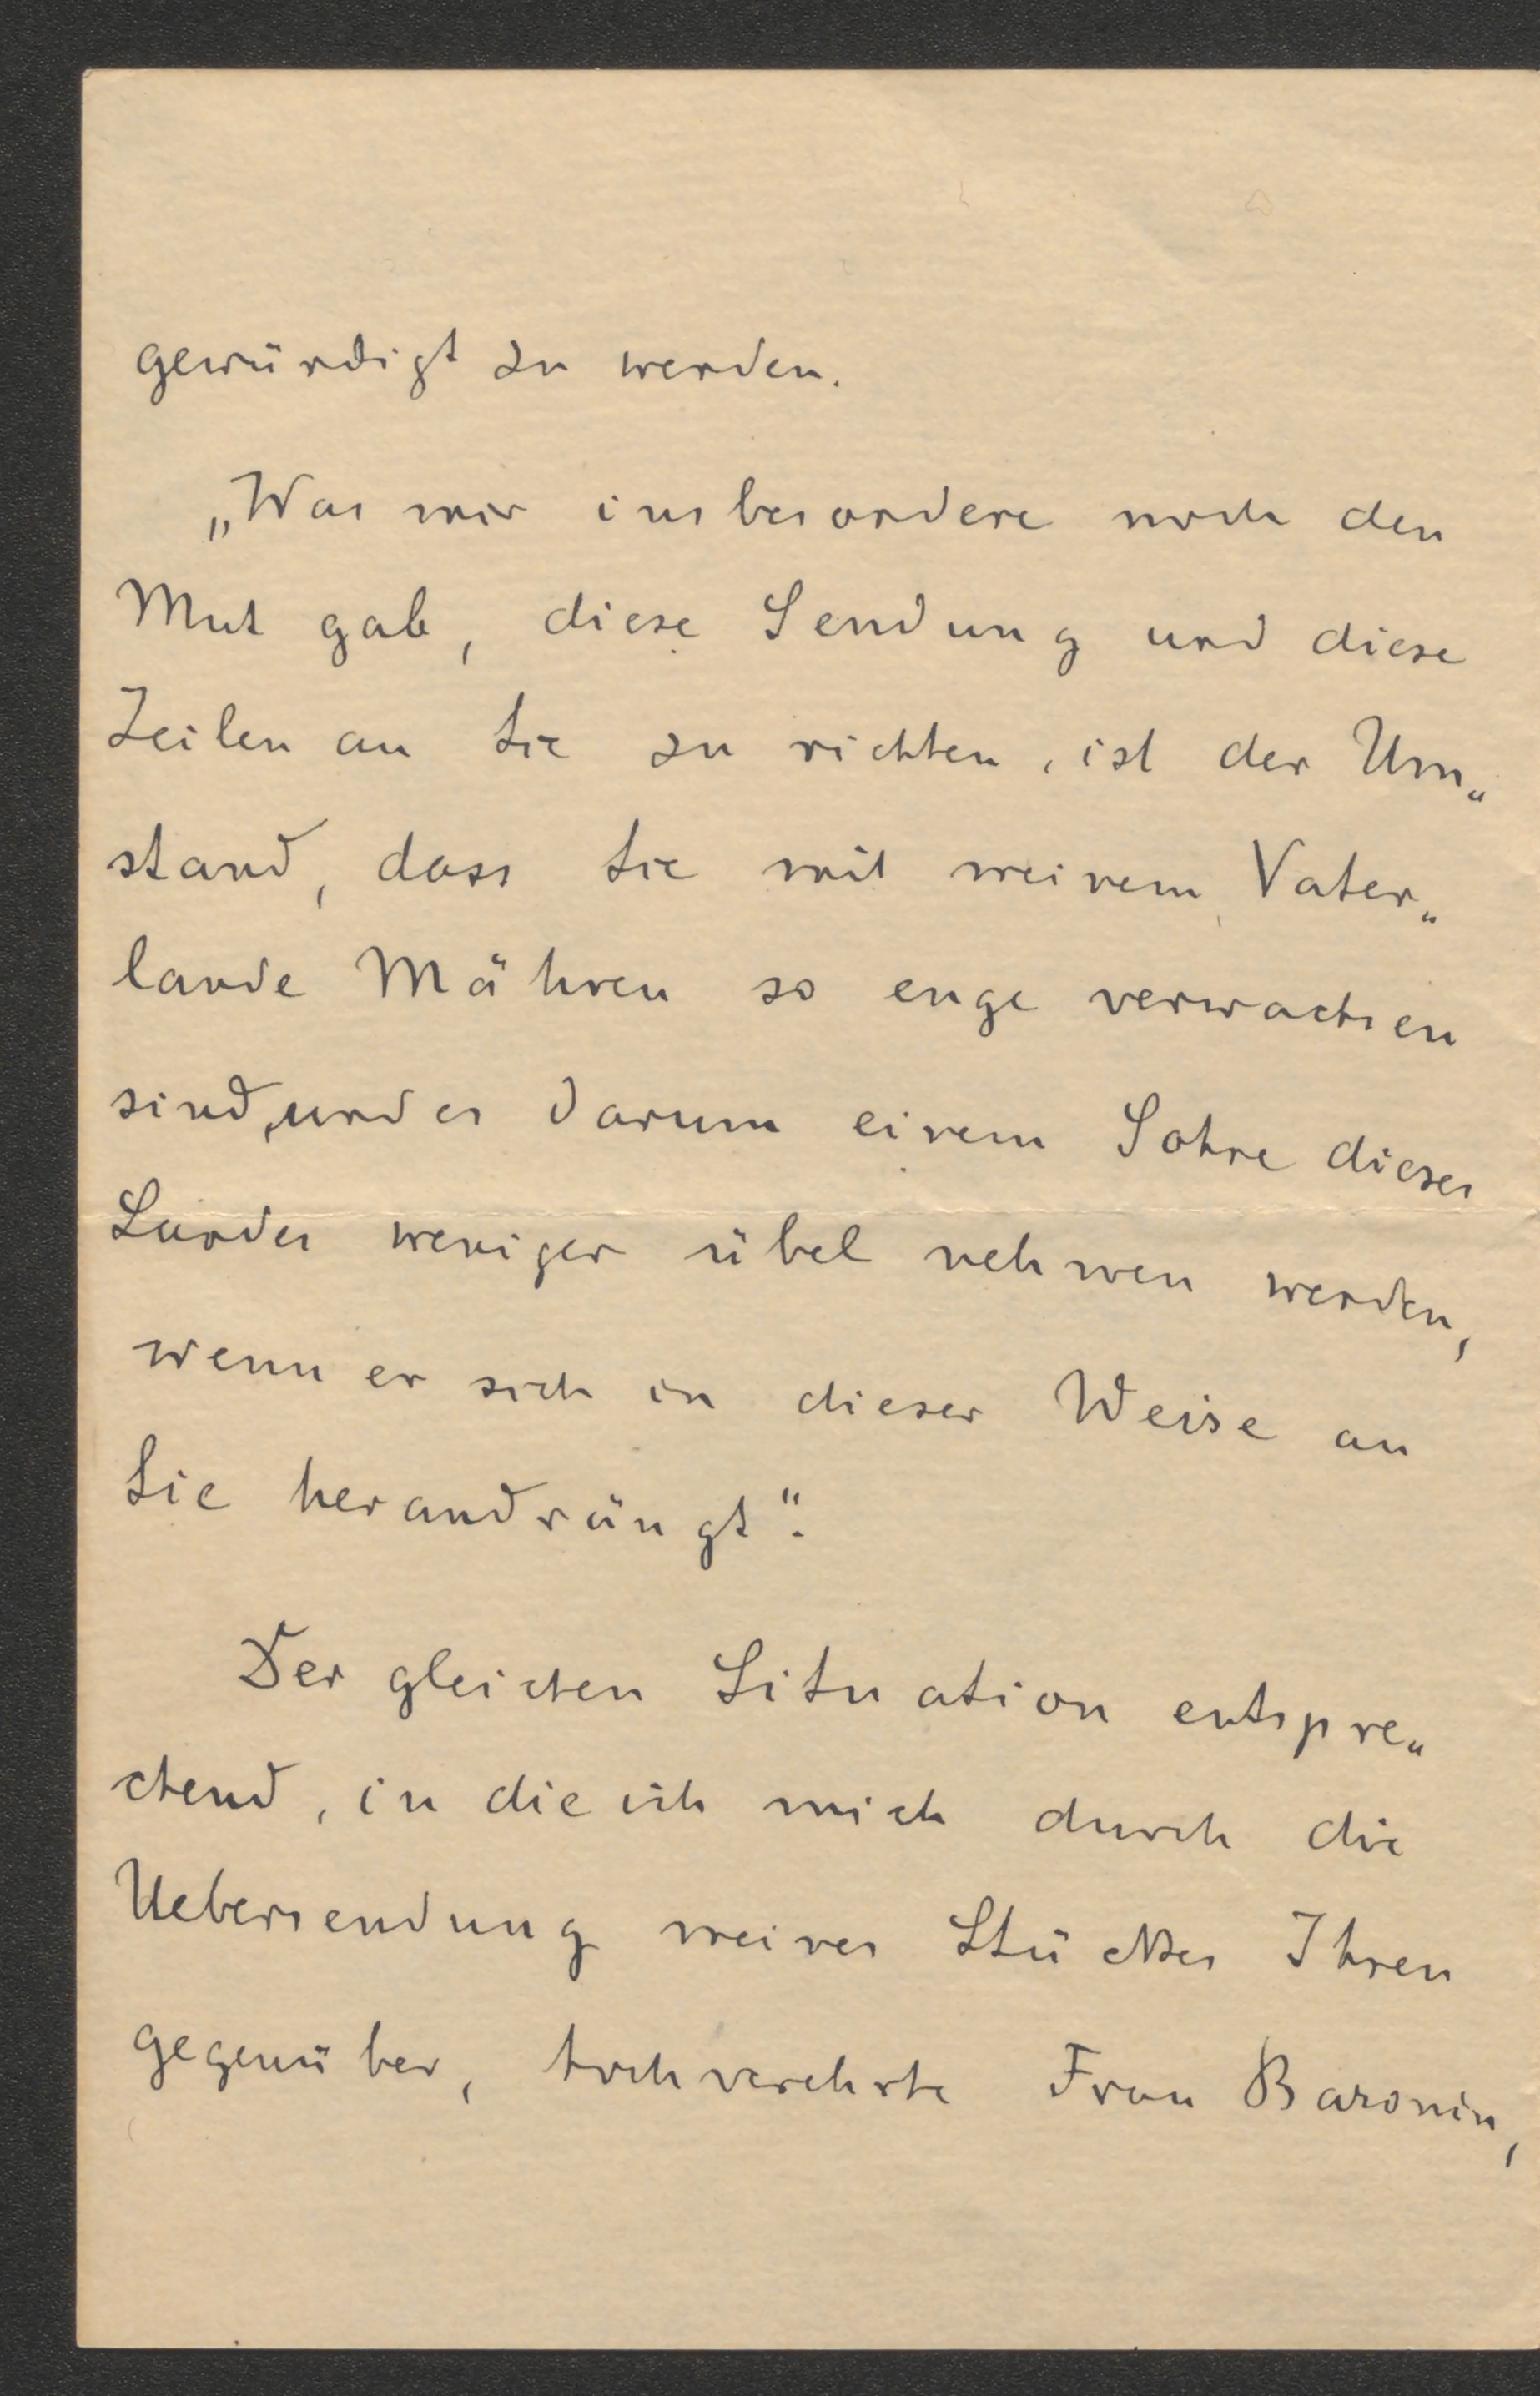 gewürdigt zu werden.
„Was mir insbesondere noch den
Mut gab, diese Sendung und diese
Zeilen an Sie zu richten, ist der Um„
stand, dass Sie mit meinem Vater„
lande Mähren so enge verwachsen
sind, und es darum einem Sohne dieses
Landes weniger übel nehmen werden,
wenn er sich in dieser Weise an
Sie herandrängt“.
Der gleichen Situation entspre„
chend, in die ich mich durch die
Uebersendung meines Stückes Ihnen
gegenüber, hochverehrte Frau Baronin,